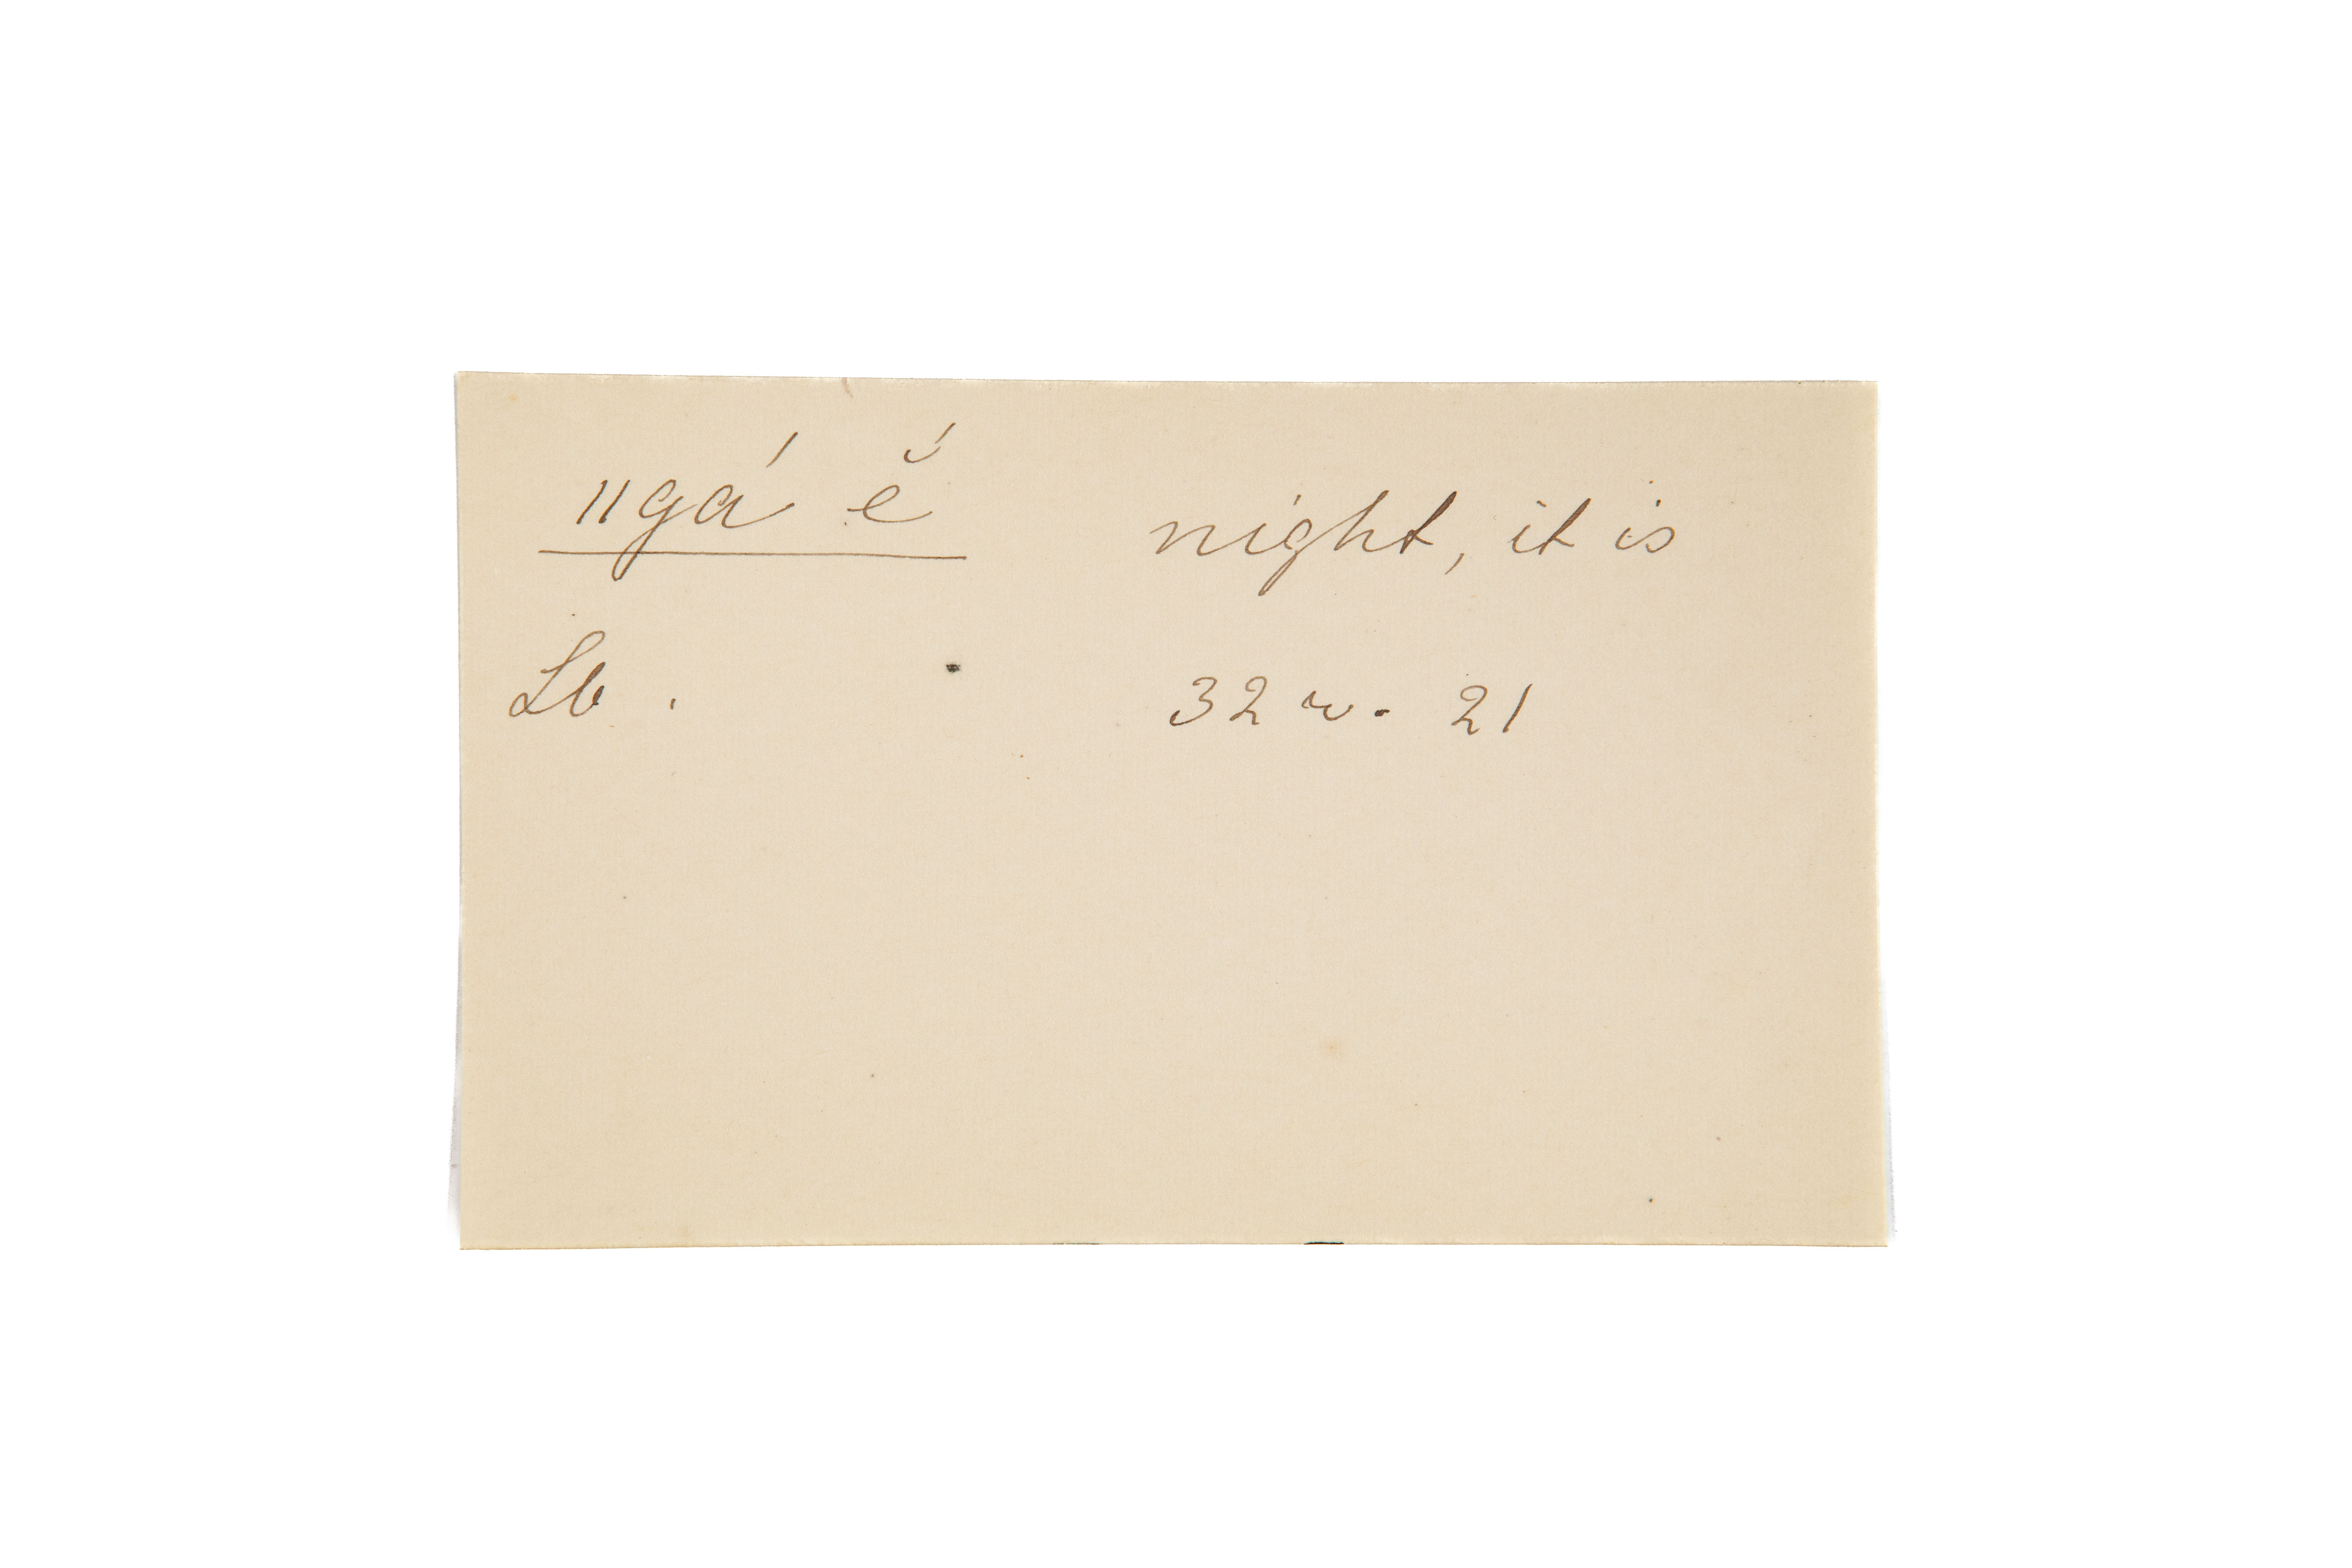 ǁgá ĕ́ night, it is
Lb. 32 r. 21